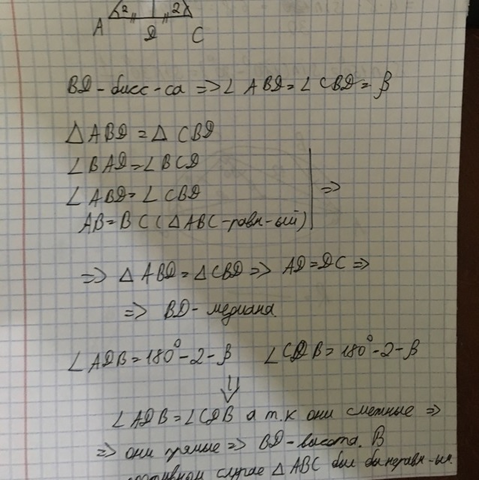 2 2
A D C
BD - бисс-са => ∠ ABD = ∠ CBD = β
△ ABD = △ CBD
∠ BAD = ∠ BCD
∠ ABD = ∠ CBD
AB = BC (△ ABC - равн-ый) =>
=> △ ABD = △ CBD => AD = DC =>
=> BD - медиана
∠ ADB = 180° - 2 - β ∠ CDB = 180° - 2 - β
⇓
∠ ADB = ∠ CDB а т.к они смежные =>
=> они прямые => BD - высота. В
случае △ ABC был бы неравн-ый